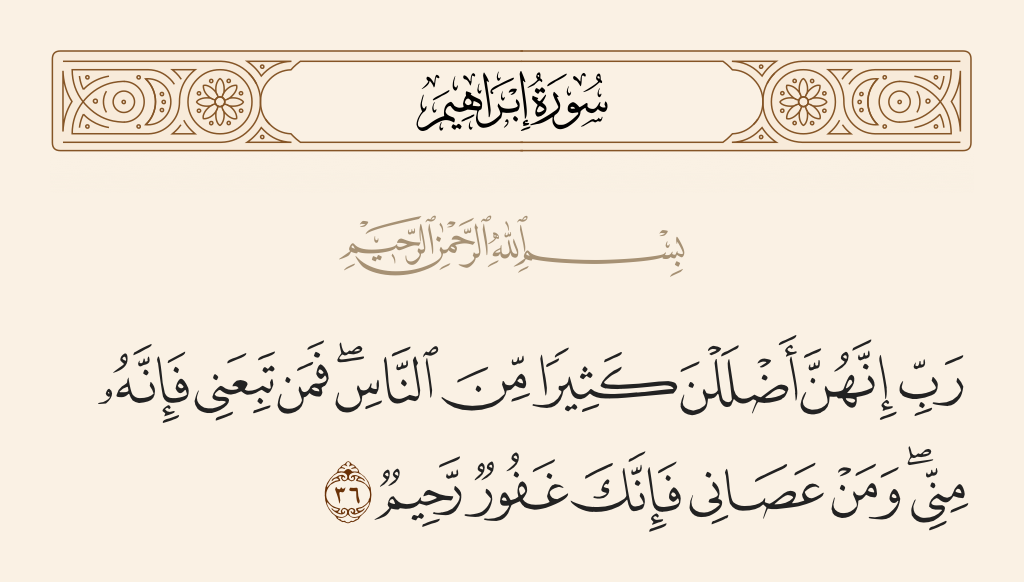 سُورَةُ إِبْرَاهِيمَ
بِسْمِ ٱللَّهِ ٱلرَّحْمَٰنِ ٱلرَّحِيمِ
رَبِّ إِنَّهُنَّ أَضْلَلْنَ كَثِيرًا مِّنَ ٱلنَّاسِ ۖ فَمَن تَبِعَنِى فَإِنَّهُۥ
مِنِّى ۖ وَمَنْ عَصَانِى فَإِنَّكَ غَفُورٌ رَّحِيمٌ ٣٦